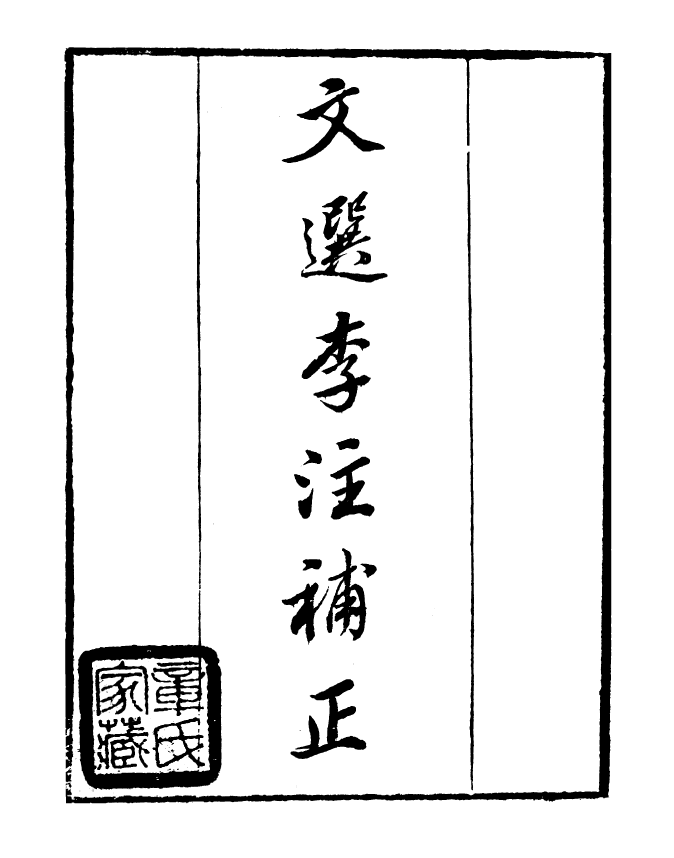 文選李注補正
章氏
家藏